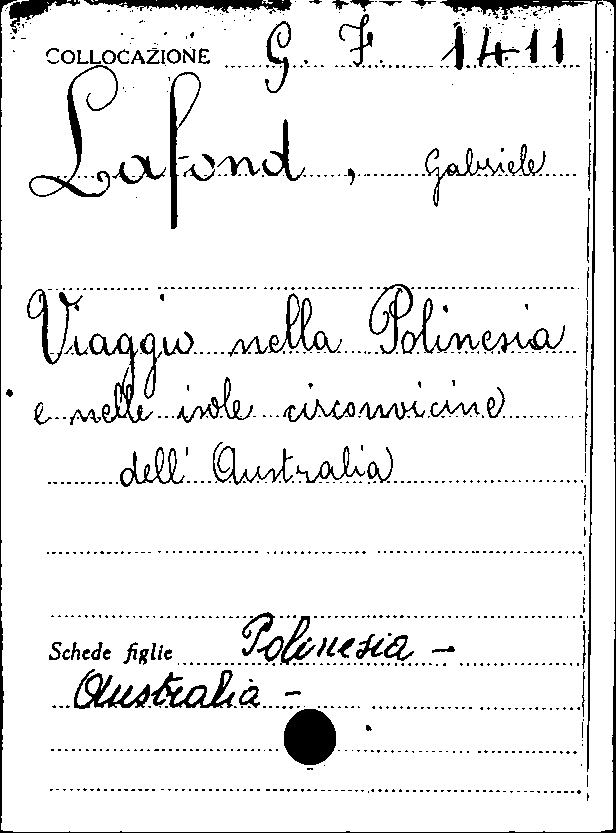 COLLOCAZIONE G. F. 1411
Lafond, Gabriele
Viaggio nella Polinesia
e nelle isole circonvicine
dell' Australia
Schede figlie Polinesia -
Australia -